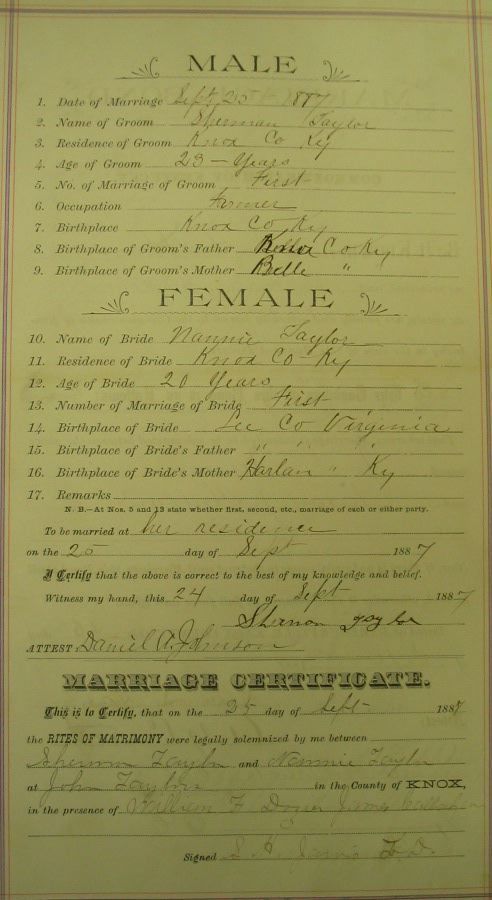 MALE
1. Date of Marriage Sept 25 1887
2. Name of Groom Sherman Taylor
3. Residence of Groom Knox Co Ky
4. Age of Groom 23 - Years
5. No. of Marriage of Groom First
6. Occupation Farmer
7. Birthplace Knox Co Ky
8. Birthplace of Groom's Father Co Ky
9. Birthplace of Groom's Mother Belle "
FEMALE
10. Name of Bride Nannie Taylor
11. Residence of Bride Knox Co - Ky
12. Age of Bride 20 Years
13. Number of Marriage of Bride First
14. Birthplace of Bride Lee Co Virginia
15. Birthplace of Bride's Father " " "
16. Birthplace of Bride's Mother Harlan " Ky
17. Remarks
N. B.—At Nos. 5 and 13 state whether first, second, etc., marriage of each or either party.
To be married at her residence
on the 25 day of Sept 1887
I Certify that the above is correct to the best of my knowledge and belief.
Witness my hand, this 24 day of Sept 1887
Sherman Taylor
ATTEST: Daniel A. Johnson
MARRIAGE CERTIFICATE.
This is to Certify, that on the 25 day of Sept 1887
the RITES OF MATRIMONY were legally solemnized by me between
Sherman Taylor and Nannie Taylor
at John Taylors in the County of KNOX,
in the presence of William F James
Signed S. H.